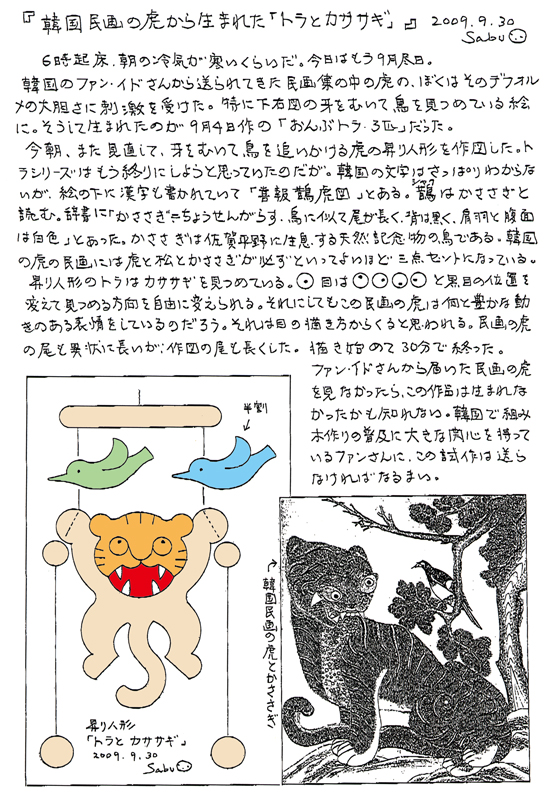 『韓国民画の虎から生まれた「トラとカササギ」』 2009.9.30
Sabu
6時起床、朝の冷気が寒いくらいだ。今日はもう9月尽日。
韓国のファン・イドさんから送られてきた民画集の中の虎の、ぼくはそのデフォル
メの大胆さに刺激を受けた。特に下右図の牙をむいて鳥を見つめている絵
に。そうして生まれたのが9月4日作の「おんぶトラ・3匹」だった。
今朝、また見直して、牙をむいて鳥を追いかける虎の昇り人形を作図した。ト
ラシリーズはもう終りにしようと思っていたのだが。韓国の文字はさっぱりわからな
いが、絵の下に漢字も書かれていて「喜報鵲虎図」とある。鵲はかささぎと
読む。辞書に「かささぎ=ちょうせんがらす、烏に似て尾が長く、背は黒く、肩羽と腹面
は白色」とあった。かささぎは佐賀平野に生息する天然記念物の鳥である。韓国
の虎の民画には虎と松とかささぎが必ずといってよいほど三点セットになっている。
昇り人形のトラはカササギを見つめている。目はと黒目の位置を
変えて見つめる方向を自由に変えられる。それにしてもこの民画の虎は何と豊かな動
きのある表情をしているのだろう。それは目の描き方からくると思われる。民画の虎
の尾も異状に長いが、作図の尾も長くした。描き始めて30分で終った。
ファン・イドさんから届いた民画の虎
を見なかったら、この作品は生まれな
かったかも知れない。韓国で組み
木作りの普及に大きな関心を持って
いるファンさんに、この試作は送ら
なければなるまい。
半割
韓国民画の虎とかささぎ
昇り人形
「トラと カササギ」
2009.9.30
Sabu